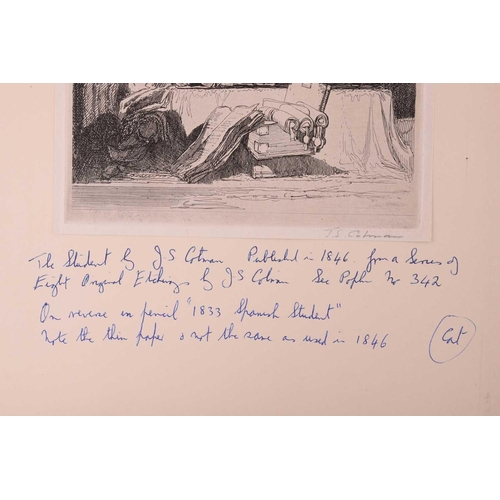 J.S. Cotman
The Student by J S Cotman Published in 1846. from a Series of
Eight Original Etchings by J S Cotman See Popham No 342
On reverse in pencil "1833 Spanish Student"
Note the thin paper & not the same as used in 1846
Cat